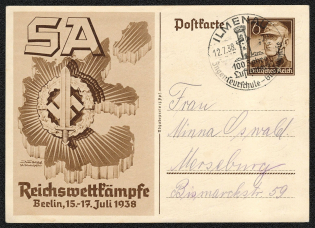 SA
Reichswettkämpfe
Berlin, 15.-17. Juli 1938
Postkarte
6
Deutsches Reich
ILMENAU
12.7.38
100
Ingenieurschule
Frau
Minna Oswald
Merseburg
Bismarckstr. 59